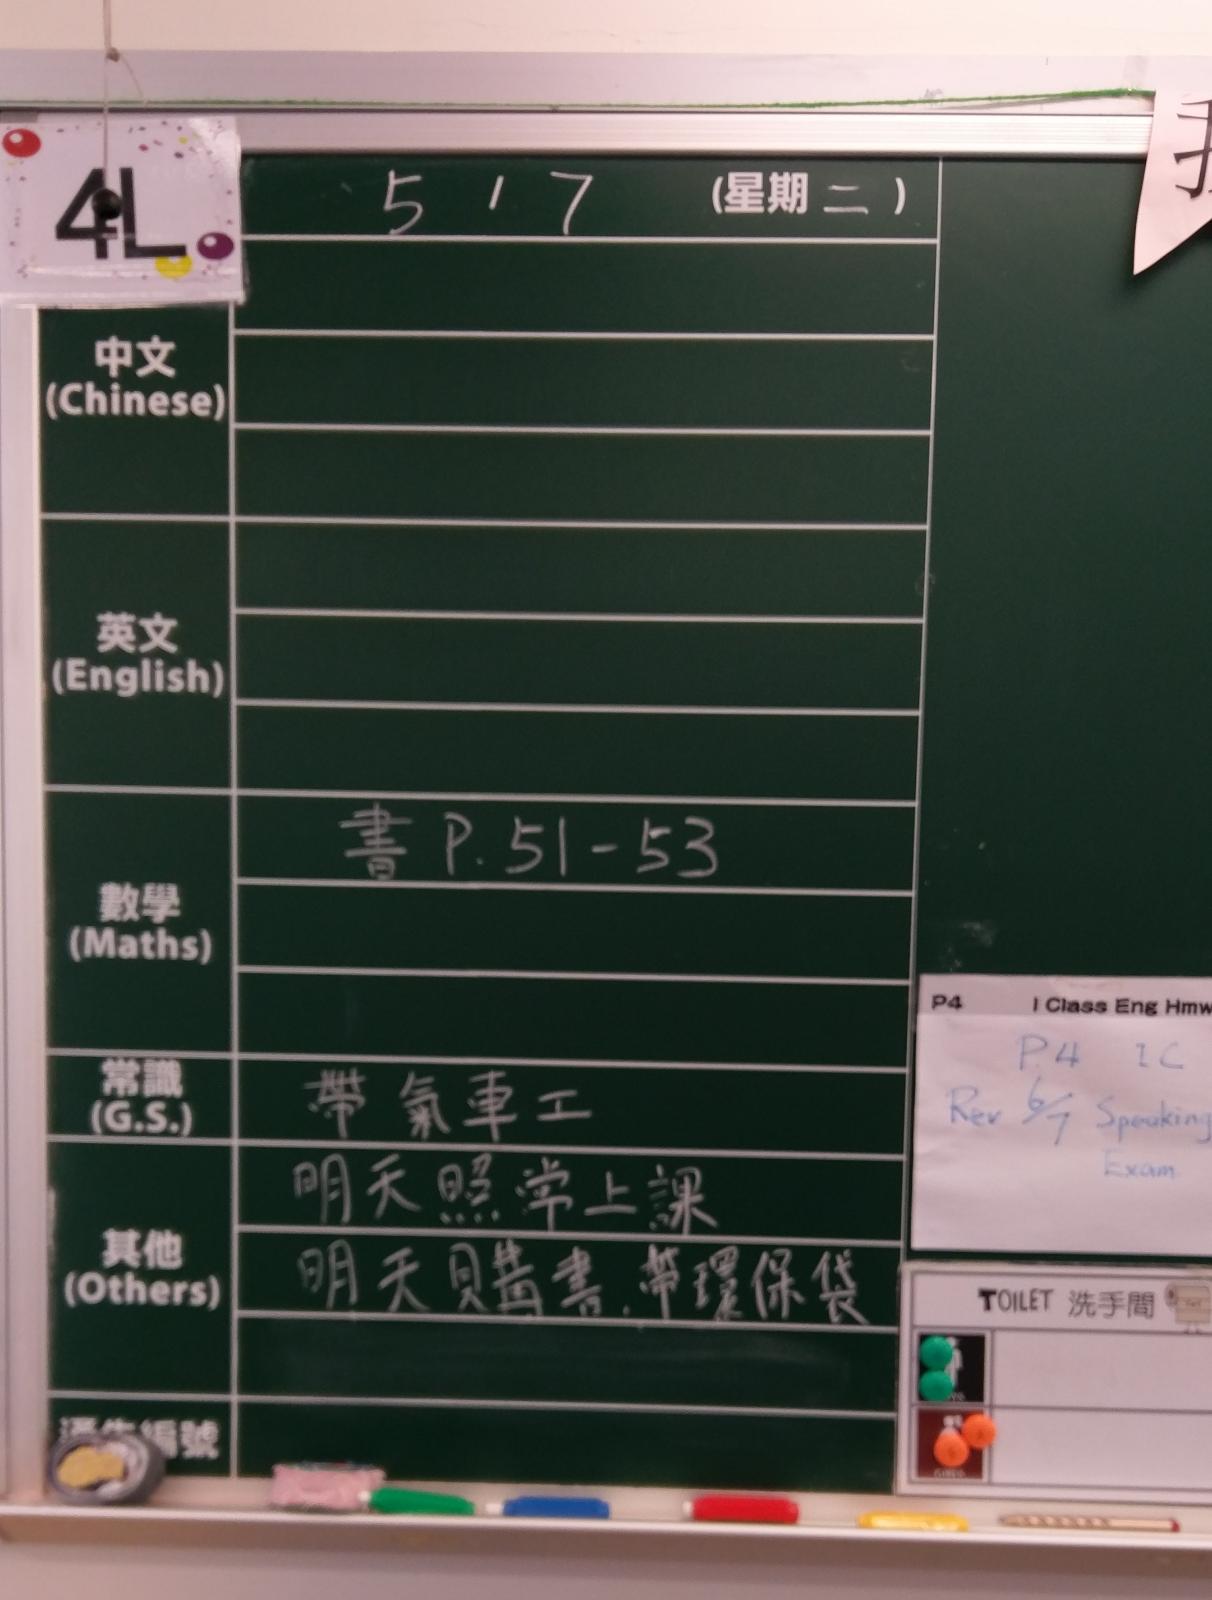 4L
5 ' 7 (星期 二 )
中文
(Chinese)
英文
(English)
數學
(Maths)
書 P. 51-53
常識
(G.S.)
帶氣車工
其他
(Others)
明天照常上課
明天購書.帶環保袋
編號
P4 I Class Eng Hmw
P.4 IC
Rev 6/7 Speaking
Exam
TOILET 洗手間